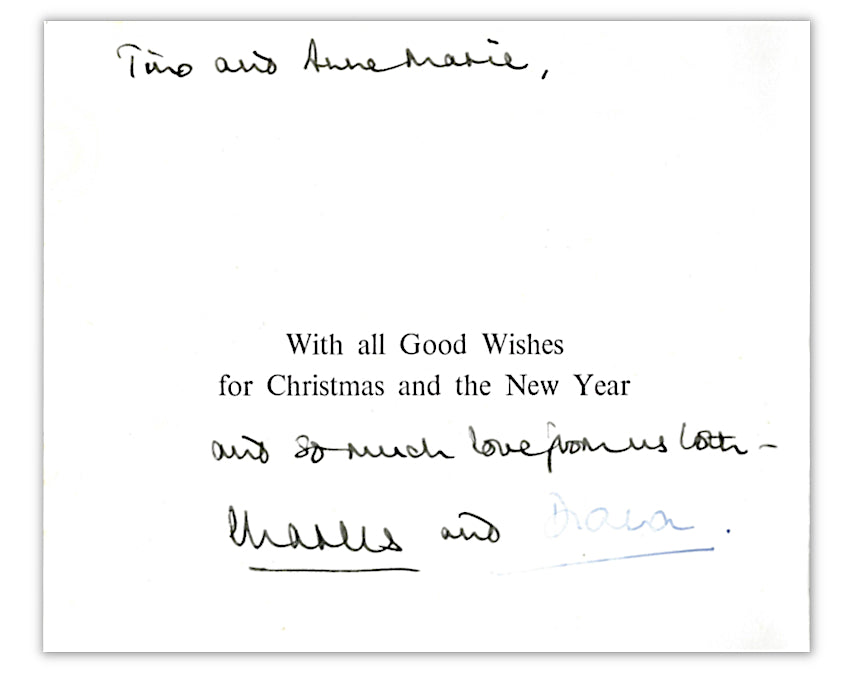 Tino and Anne Marie,
With all Good Wishes
for Christmas and the New Year
and so much love from us both –
Charles and Diana.